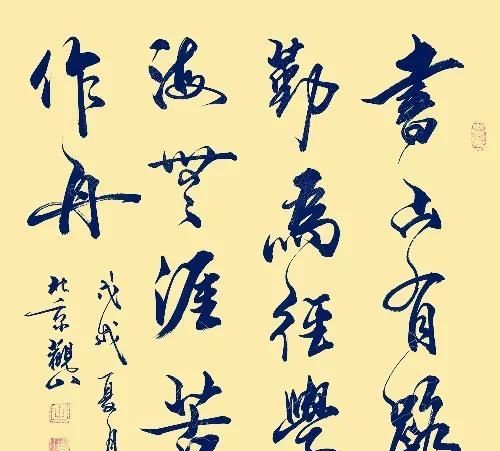 書山有路
勤為徑學
海無涯苦
作舟
戊戌夏月
北京觀山